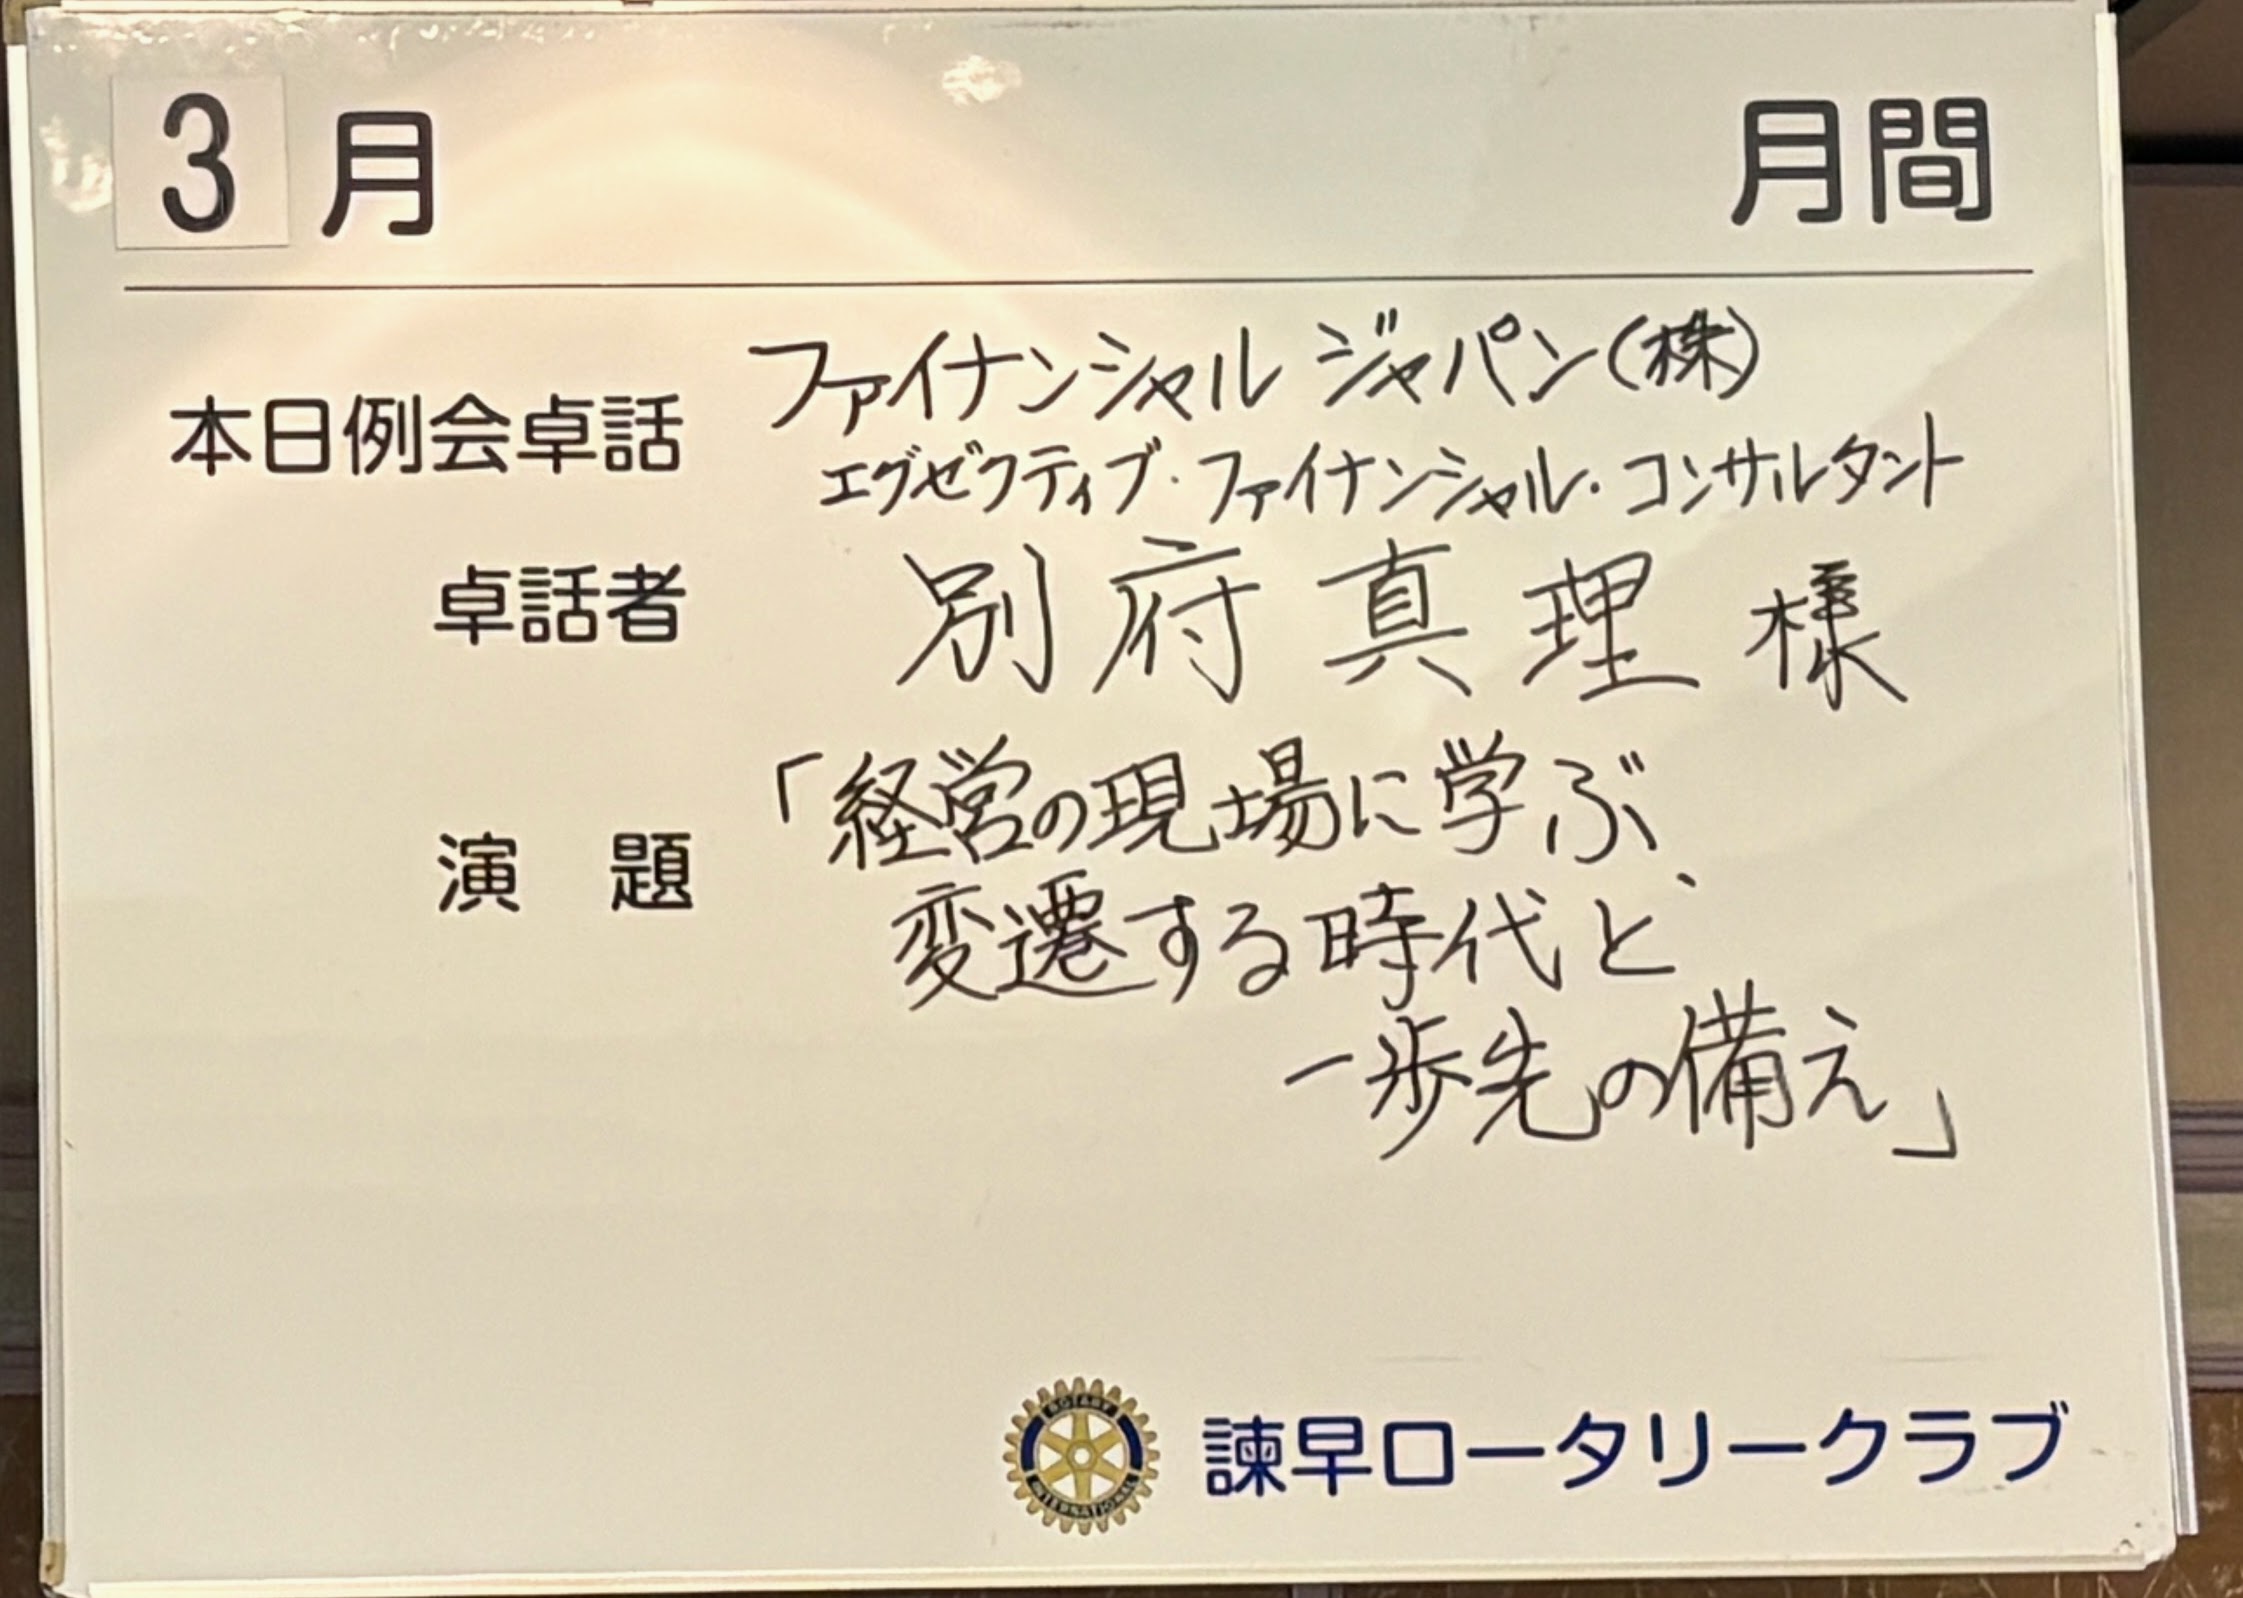 3月 月間
本日例会卓話 ファイナンシャル ジャパン(株)
エグゼクティブ・ファイナンシャル・コンサルタント
卓話者 別府真理 様
演 題 「経営の現場に学ぶ、
変遷する時代と、
一歩先の備え」
ROTARY
INTERNATIONAL
諫早ロータリークラブ